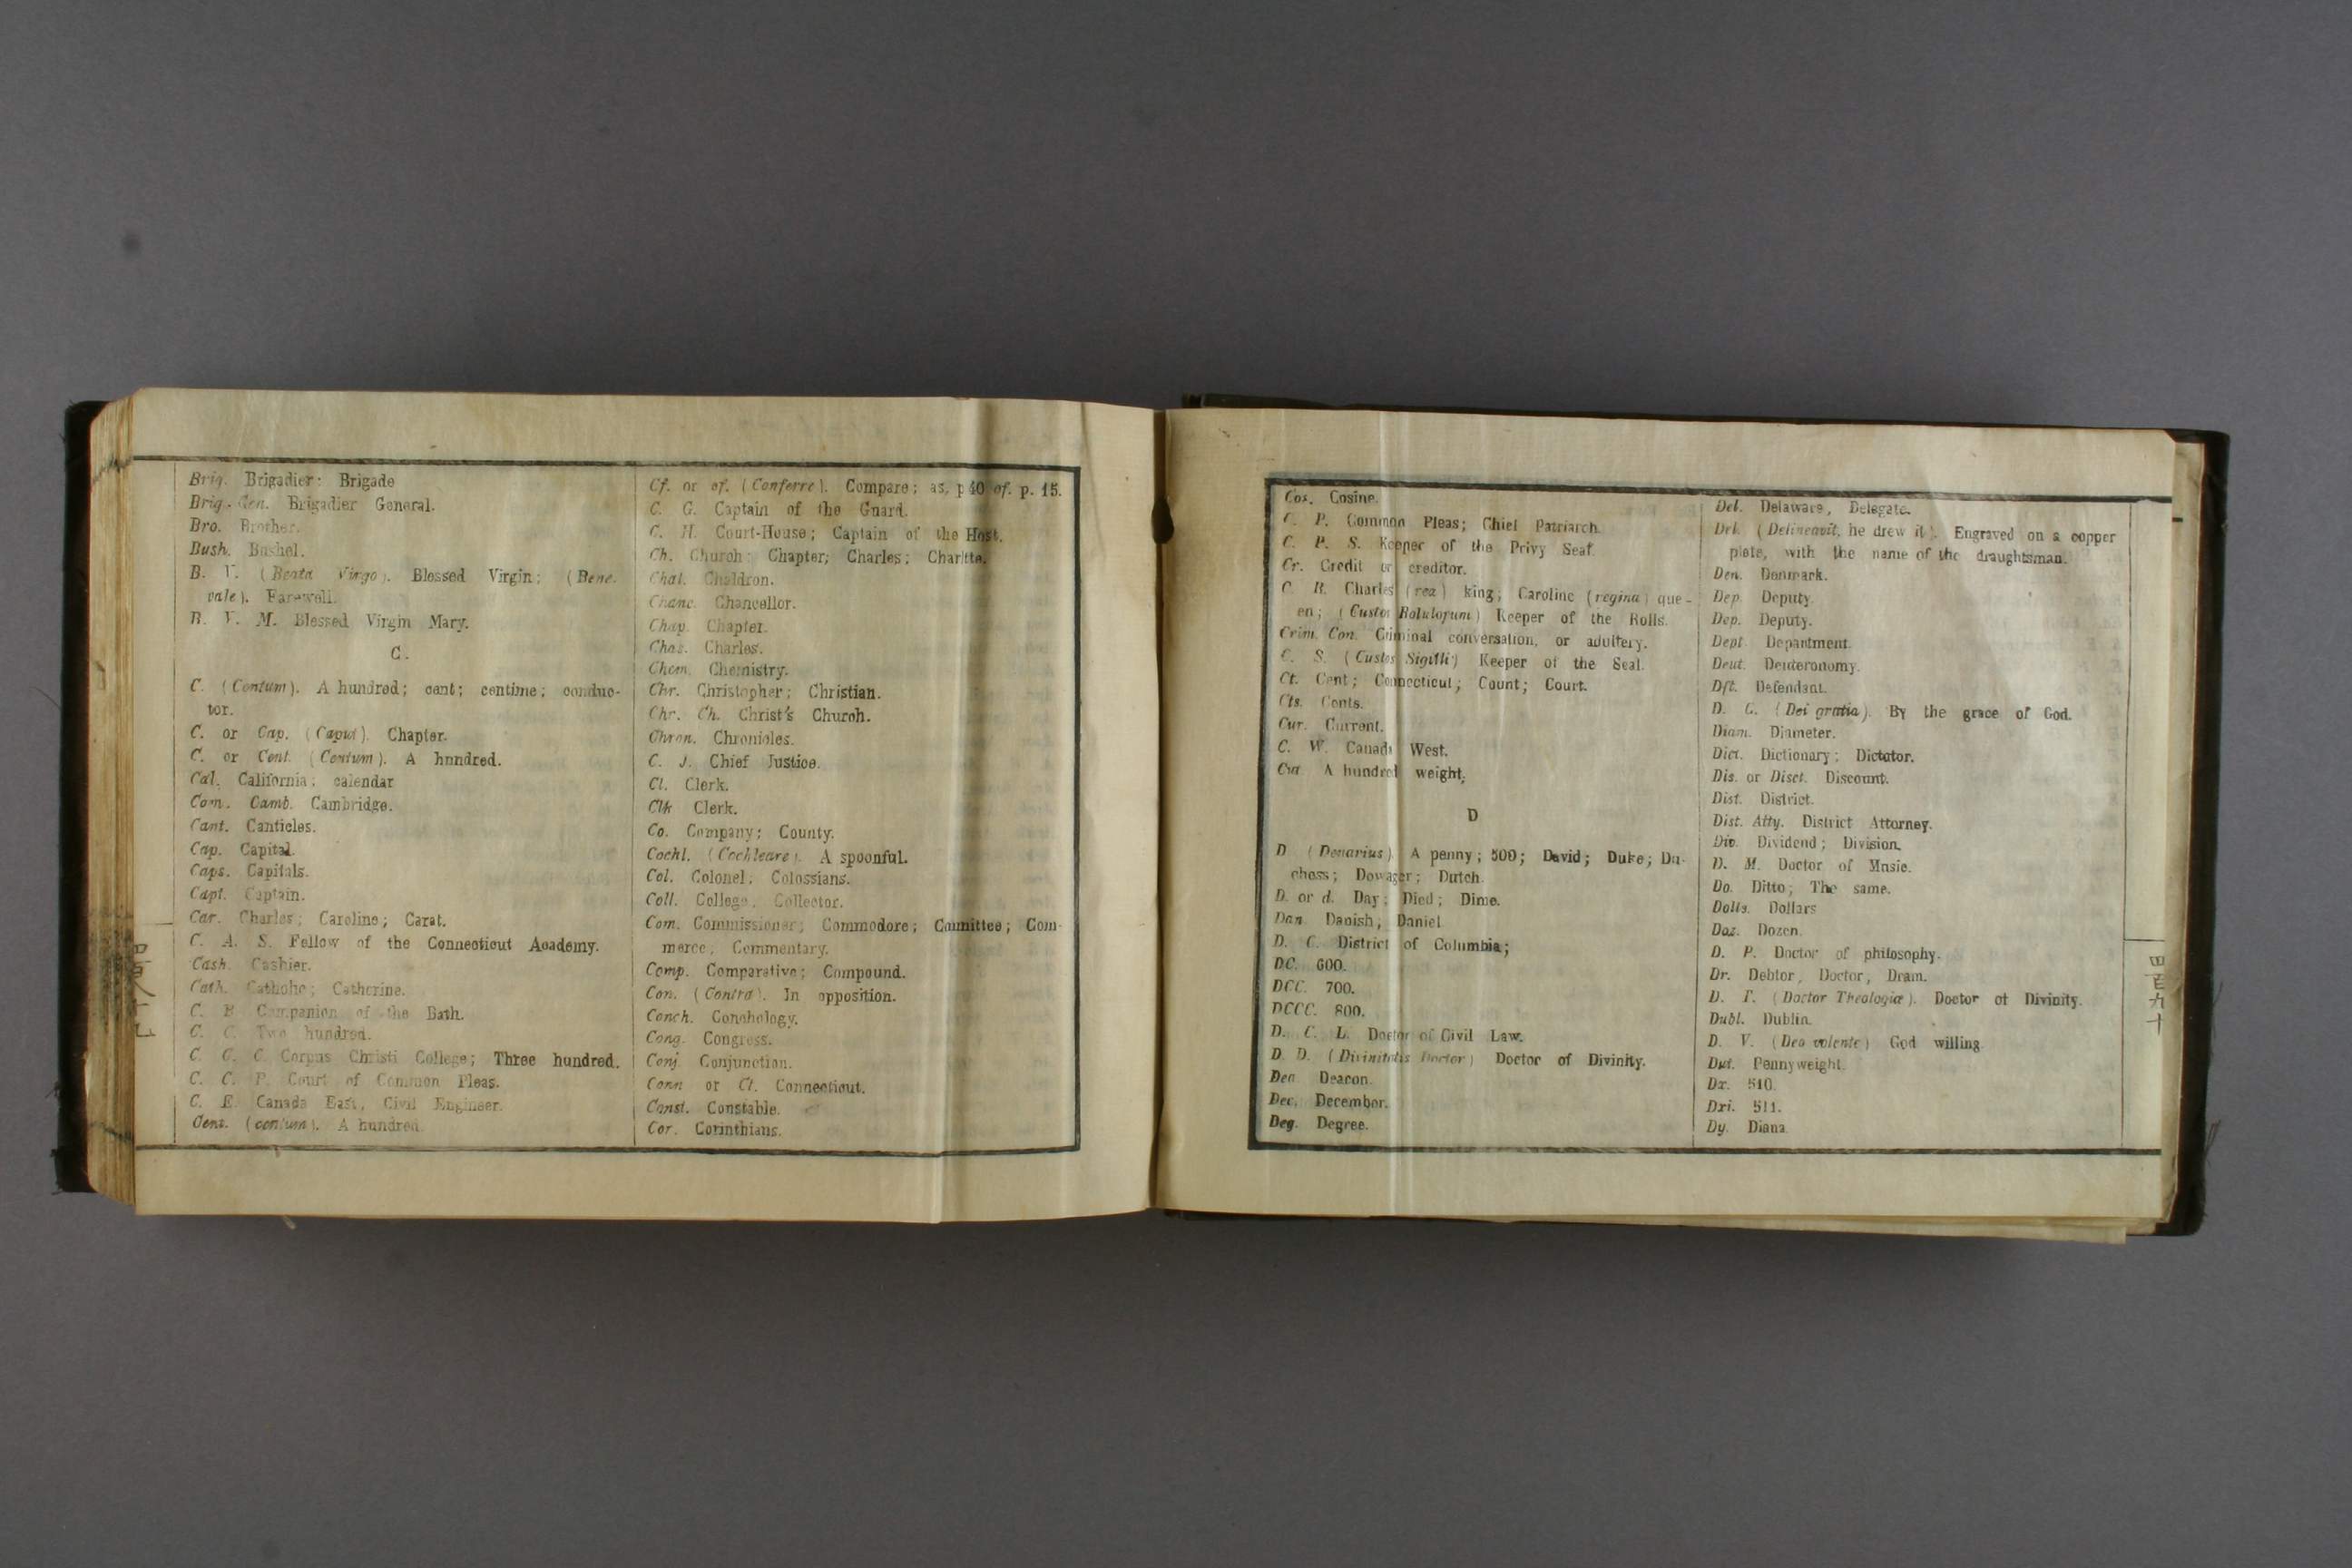 Brig. Brigadier: Brigade
Brig.-Gen. Brigadier General.
Bro. Brother.
Bush. Bushel.
B. V. (Beata Virgo). Blessed Virgin; (Bene
vale). Farewell.
B. V. M. Blessed Virgin Mary.
C.
C. (Centum). A hundred; cent; centime; conduc-
tor.
C. or Cap. (Caput). Chapter.
C. or Cent. (Centum). A hnndred.
Cal. California; calendar
Cam. Camb. Cambridge.
Cant. Canticles.
Cap. Capital.
Caps. Capitals.
Capt. Captain.
Car. Charles; Caroline; Carat.
C. A. S. Fellow of the Connecticut Academy.
Cash. Cashier.
Cath. Catholic; Catherine.
C. B. Companion of the Bath.
C. C. Two hundred.
C. C. C. Corpus Christi College; Three hundred.
C. C. P. Court of Common Pleas.
C. E. Canada East, Civil Engineer.
Cent. (centum). A hundred.
Cf. or cf. (Conferre). Compare; as, p 40 cf. p. 15.
C. G. Captain of the Guard.
C. H. Court-House; Captain of the Host.
Ch. Church; Chapter; Charles; Charltte.
Chal. Chaldron.
Chanc. Chancellor.
Chap. Chapter.
Chas. Charles.
Chem. Chemistry.
Chr. Christopher; Christian.
Chr. Ch. Christ's Church.
Chron. Chronicles.
C. J. Chief Justice.
Cl. Clerk.
Clk Clerk.
Co. Company; County.
Cochl. (Cochleare). A spoonful.
Col. Colonel, Colossians.
Coll. College, Collector.
Com. Commissioner; Commodore; Cmmittee; Com-
merce; Commentary.
Comp. Comparative; Compound.
Con. (Contra). In opposition.
Conch. Conchology.
Cong. Congress.
Conj. Conjunction.
Conn or Ct. Connecticut.
Const. Constable.
Cor. Corinthians.
Cos. Cosine.
C. P. Common Pleas; Chief Patriarch.
C. P. S. Keeper of the Privy Seaf.
Cr. Credit or creditor.
C. R. Charles (rea) king; Caroline (regina) que-
en; (Custos Rolulorum) Keeper of the Rolls.
Crim. Con. Criminal conversation, or adultery.
C. S. (Custos Sigilli) Keeper of the Seal.
Ct. Cent; Connecticut; Count; Court.
Cts. Cents.
Cur. Current.
C. W. Canada West.
Cwt A hundred weight.
D
D (Denarius). A penny; 500; David; Duke; Du-
chess; Dowager; Dutch.
D. or d. Day; Died; Dime.
Dan. Danish; Daniel
D. C. District of Columbia;
DC. 600.
DCC. 700.
DCCC. 800.
D. C. L. Doctor of Civil Law.
D. D. (Divinitatis Doctor) Doctor of Divinity.
Dea Deacon.
Dec. December.
Deg. Degree.
Del. Delaware, Delegate.
Del. (Delineavit, he drew it). Engraved on a copper
plate, with the name of the draughtsman.
Den. Denmark.
Dep. Deputy.
Dep. Deputy.
Dept Department.
Deut. Deuteronomy.
Dft. Defendant.
D. G. (Dei gratia). By the grace of God.
Diam. Diameter.
Dict. Dictionary; Dictator.
Dis. or Disct. Discount.
Dist. District.
Dist. Atty. District Attorney.
Div. Dividend; Division.
D. M. Doctor of Music.
Do. Ditto; The same.
Dolls. Dollars
Doz. Dozen.
D. P. Doctor of philosophy.
Dr. Debtor, Doctor, Dram.
D. T. (Doctor Theologiæ). Doctor of Divinity.
Dubl. Dublin.
D. V. (Deo volente) God willing.
Dwt. Pennyweight.
Dx. 510.
Dxi. 511.
Dy. Diana
四百九十